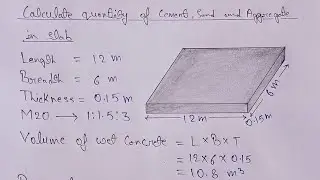 Calculate quantity of Cement, Sand and Aggregate
in slab
Length = 12 m
Breadth = 6 m
Thickness = 0.15 m
M20 → 1:1.5:3
12 m
0.15m
6 m
Volume of wet Concrete = L×B×T
= 12×6×0.15
= 10.8 m³